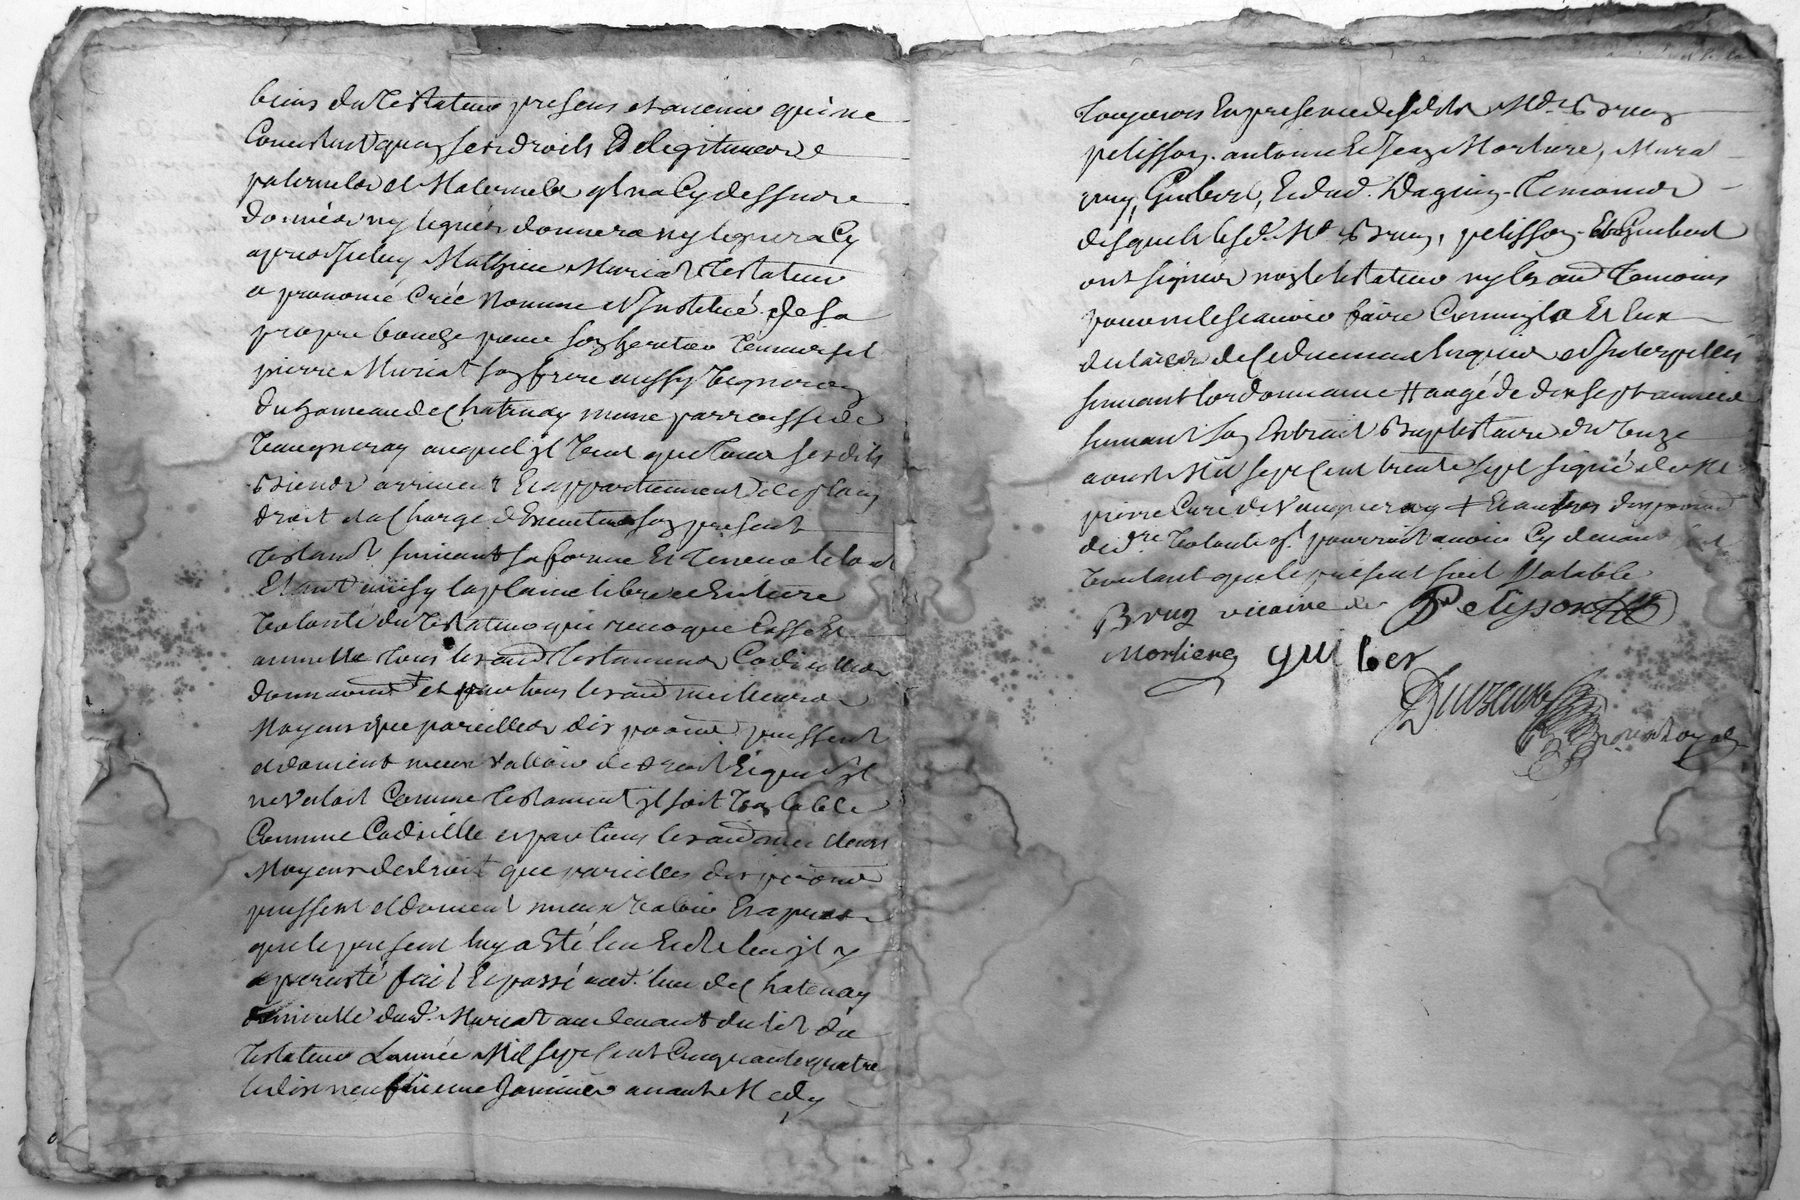 biens du Testateur presens et avenir qui ne
Consistent qu'en ses droits De legitimes
paternelles et Maternelles qu'il na Cy dessus
donnés ny legués donnera ny leguera Cy
apres Mathieu Muriat Testateur
a prononcé Créé Nommé et Institué de Sa
propre bouche pour son heritier
pierre Muriat son frere aussy
du hameau de Chatenay meme parroisse de
Vaugneray auquel il Veut que tous ses dits
Biens arrivent Et appartiennent de plain
droit a la Charge d'Executer son present
Testament suivant sa forme Et Teneur le tout
Etant ainsy la plaine libre et Entiere
Volonté du Testateur qui revoque Casse Et
annulle tous les aud Testaments Codicilles
et par tous les aud meilleurs
Moyens que pareilles disposond puissent
et doivent mieux valloir de droit Et quand il
ne Vaudroit Comme testament il soit Valable
Comme Codicille et par tous les aud meilleurs
Moyens de droit que pareilles disposond
puissent et doivent mieux Valoir Et apres
que le present luy a Eté leu Et releu il y
a persisté fait Et passé aud. lieu de Chatenay
domicille dud. Muriat au devant du lit du
Testateur L'année Mil sept Cent Cinquante quatre
le dix neufvieme Janvier avant Midy
Toujours En presence desdits Mre Brun
pelisson antoine Et Jean Morliere,
Guibert, Et dud. Daguin Temoins
desquels lesd. Mre Brun, pelisson Et Guibert
ont signés non le testateur ny les aud Temoins
pour ne le scavoir faire Comme ils Et Eux
declaré de Ce duement Enquis et Interpellés
suivant lordonnance # aagé de dix sept années
suivant son Extrait Baptistaire du Onze
aoust Mil sept Cent trente sept signé de Mre
pierre Curé de Vaugneray #
de dre Volonté qu'il pourroit avoir Cy devant
Voulant que le present soit Valable
Brun vicaire de Pelisson
Morliere guiber